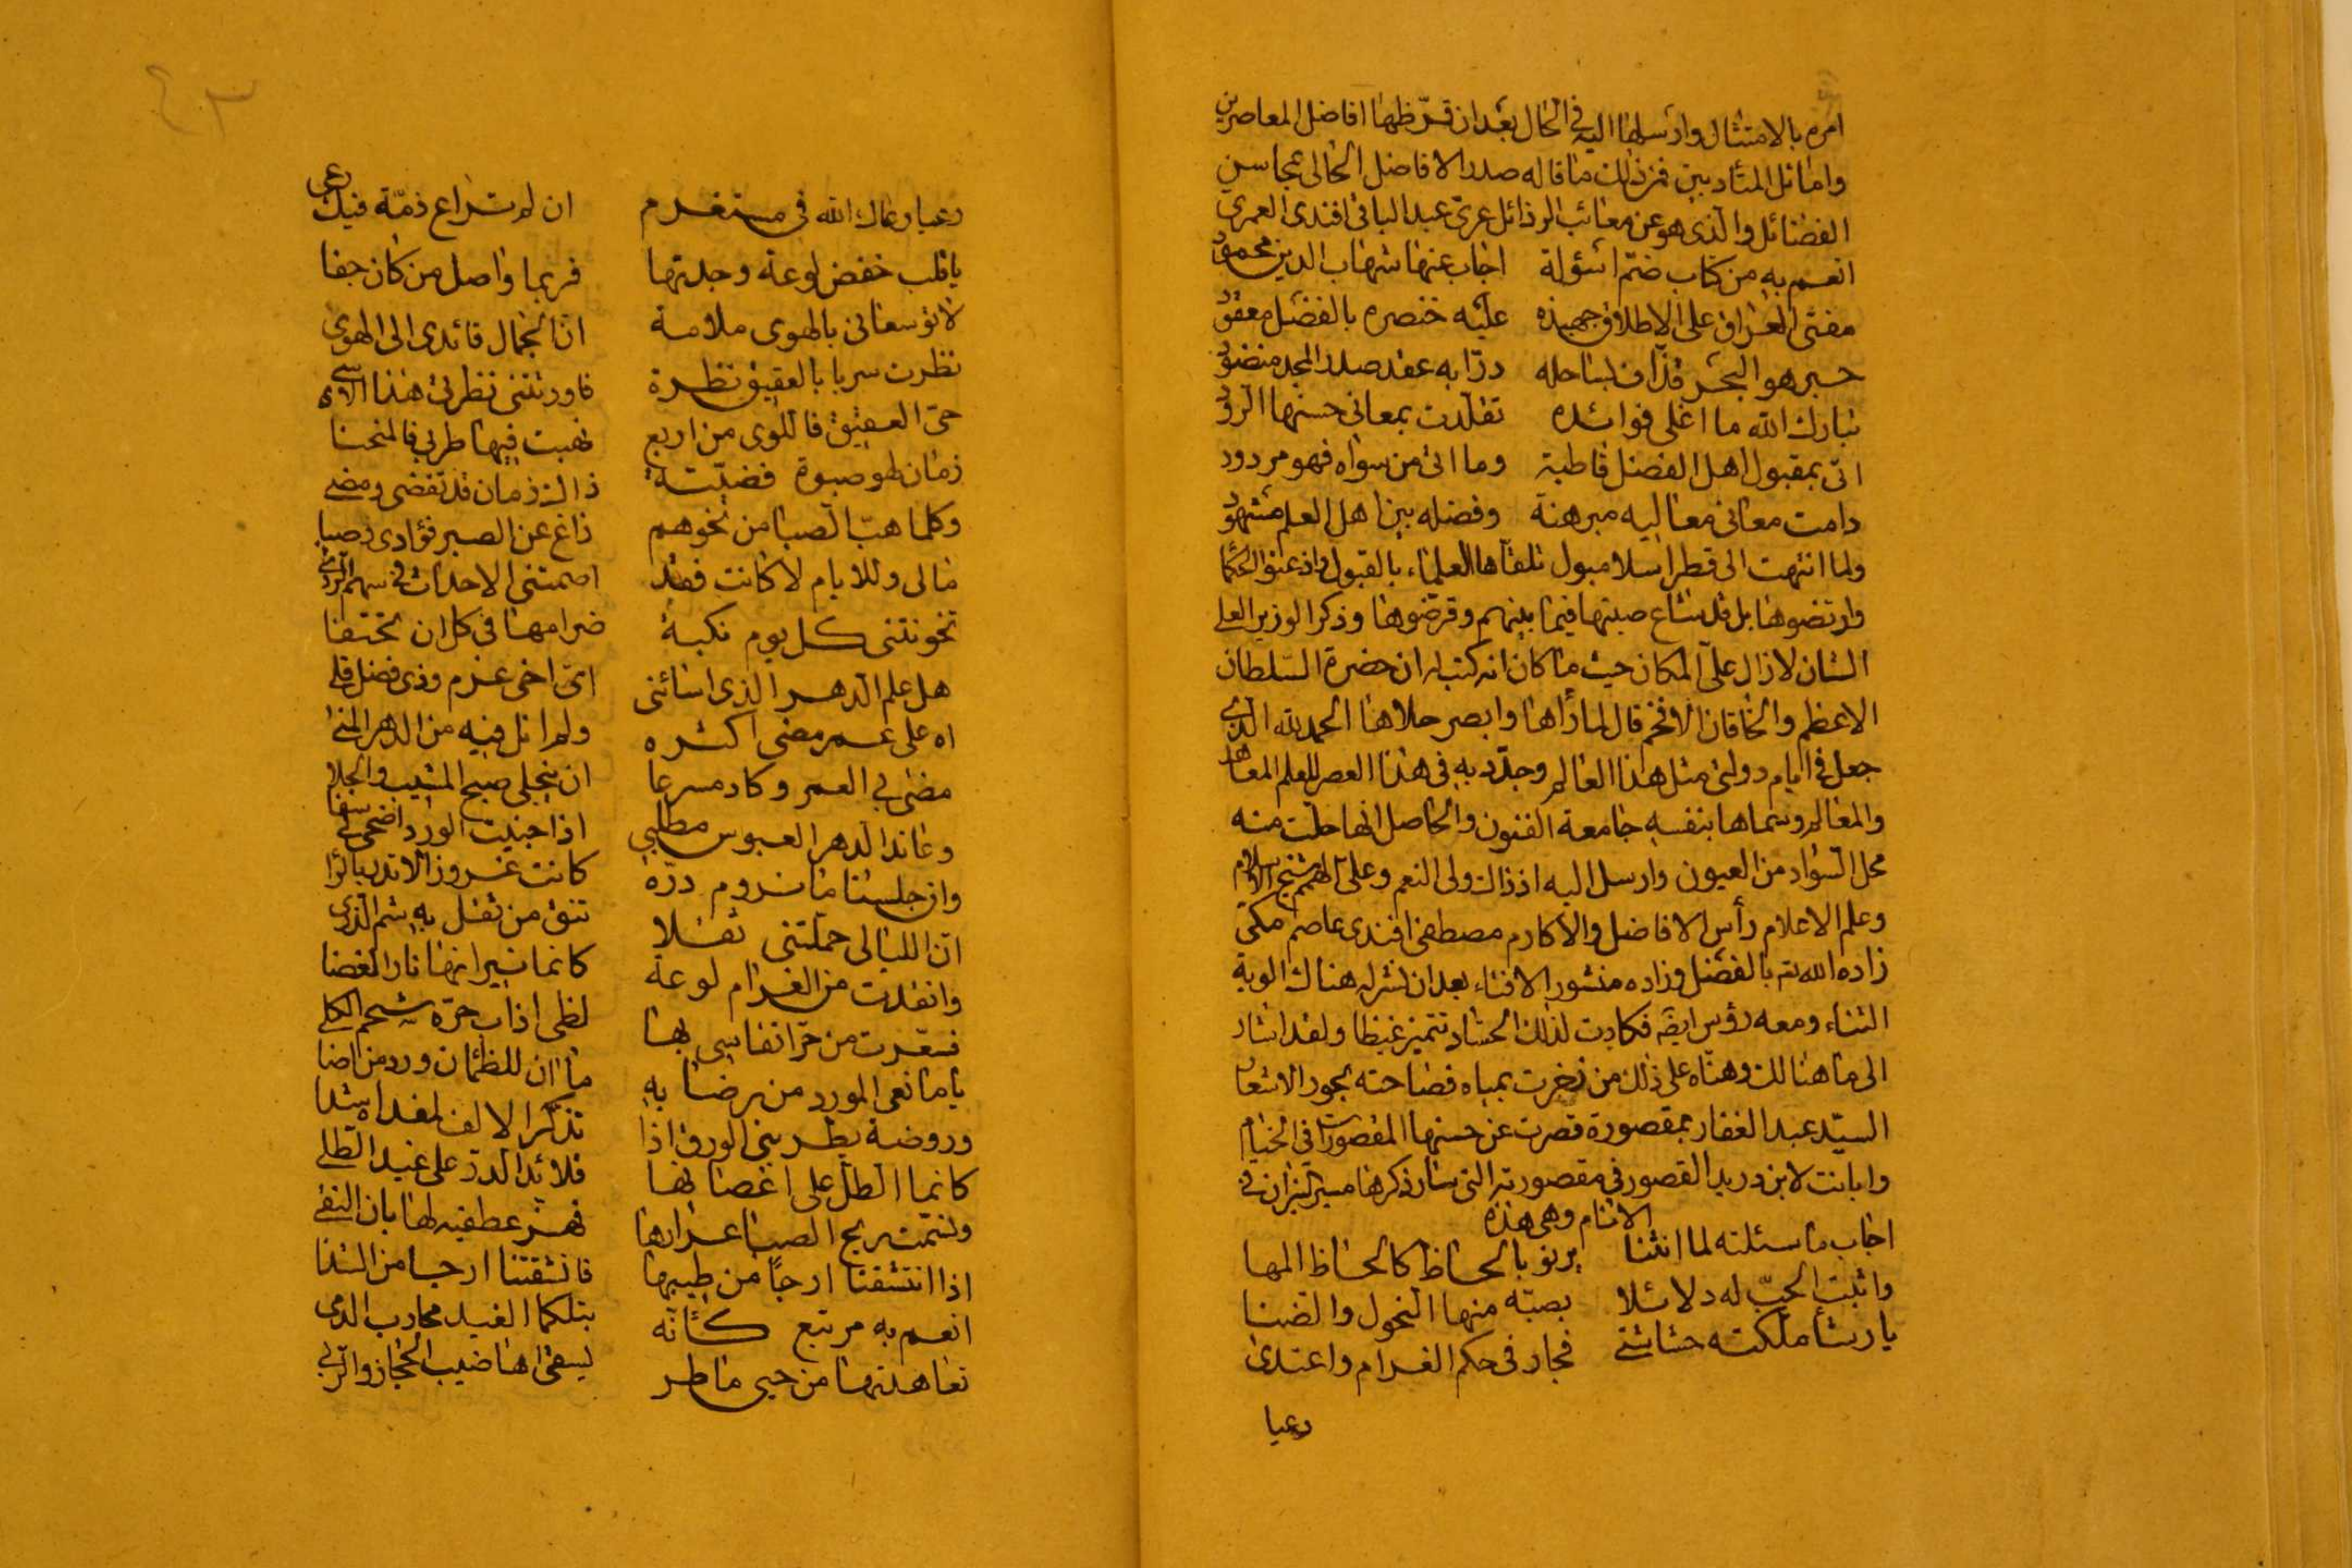 امره بالامتثال وارسلها اليه في الحال بعد ان قرّظها افاضل المعاصرين
واماثل المتأدبين فمن ذلك ما قاله صدر الافاضل الحالى بمحاسن
الفضائل والذى هو عن معائب الرذائل عرى عبد الباقى افندى العمرى
انعم به من كتاب ضم اسئولة اجاب عنها شهاب الدين محمود
مفتى العراق على الاطلاق جهبذه عليه خنصره بالفضل معقود
حبر هو البحر قذاف لساحله درّا به عقد صدر المجد منضود
تبارك الله ما اغلى فوائده تقلدت بمعانى حسنها الرود
اتى بمقبول اهل الفضل قاطبة وما اتى من سواه فهو مردود
دامت معانى معاليه مبرهنة وفضله بين اهل العلم مشهود
ولما انتهت الى قطر اسلامبول تلقاها العلماء بالقبول واذعنوا لحكمها
وارتضوها بل قد شاع صيتها فيما بينهم وقرضوها وذكر الوزير العلى
الشان لازال على المكان حيث ما كان انه كتب له ان حضرة السلطان
الاعظم والخاقان الافخم قال لما رأاها وابصر حلاها الحمد لله الذى
جعل فى ايام دولتى مثل هذا العالم وجدّد به فى هذا العصر للعلم المعاهد
والمعالم وسماها بنفسه جامعة الفنون والحاصل انها حلت منه
محل السواد من العيون وارسل اليه اذ ذاك ولى النعم وعلى الهمم شيخ الاسلام
وعلم الاعلام رأس الافاضل والاكارم مصطفى افندى عاصم مكى
زاده الله تم بالفضل وزاده منشور الافتاء بعد ان نشر له هناك الوية
الثناء ومعه رؤس ايضه فكادت لذلك الحساد تتميز غيظا ولقد اشار
الى ما هنالك وهنّاه على ذلك من زخرت بمياه فصاحته بحور الاشعار
السيّد عبد الغفار بمقصورة قصرت عن حسنها المقصورات فى الخيام
وابانت لابن دريد القصور فى مقصورته التى سار ذكرها مسير النيران فى
الانام وهى هذه
اجاب ما سئلته لما انثنا يرنو بالحاظ كالحاظ المها
واثبت الحبّ له دلائلا بصبّه منها النحول والضنا
يا رشأ ملكته حشاشتى فجار فى حكم الغرام واعتدى
رعيا
رعيا رعاك الله فى مستغرم ان لم تراع ذمّة فيك رعى
يا قلب خفض لوعة وجدتها فربما واصل من كان جفا
لا توسعانى بالهوى ملامة انّ الجمال قائدى الى الهوى
نظرت سربا بالعقيق نظرة فاورثتنى نظرتى هذا الاسى
حىّ العقيق فاللوى من اربع نهبت فيها طربى فالمنحنا
زمان لهو صبوة قضيته ذاك زمان قد تقضى ومضى
وكلما هبّ الصبا من نحوهم زاغ عن الصبر فؤادى وصبا
مالى وللايام لا كانت فقد اصمتنى الاحداث فى سهم الردى
تخونتنى كل يوم نكبة ضرامها فى كل ان تختفا
هل علم الدهر الذى اسائنى اىّ اخى عزم وذى فضل قلى
اه على عمر مضى اكثره ولم انل فيه من الدهر المنى
مضى بى العمر وكاد مسرعا ان ينجلى صبح المشيب والجلا
وعاند الدهر العبوس مطلبى اذا جنيت الورد اضحى لى سفا
وان جلسنا ما نروم درّه كانت غروز الاتدر بالرّا
انّ الليالى حملتنى ثقلا تنوء من ثقل به شم الذرى
وانقدت من الغرام لوعة كانما نيرانها نار الغضا
فسعّرت من حرّ انفاسى بها لظى اذاب حرّه شحم الكلى
يا مانعى المورد من رضابه ما ان للظمان ورد من اضا
وروضة يطربنى الورق اذا تذكّر الالف لفقد اه شدا
كانما الطل على اغصانها قلائد الدرّ على غيد الطلى
ونسّمت ريح الصبا عرارها فهزّ عطفيه لها بان النقى
اذا انتشقنا ارجًا من طيبها فانشقتنا ارجا من الشذا
انعم به مرتبع كأنّه بتلكما الغيد محارب الدمى
تعاهدتها من حيى ماطر ليسقى اهاضيب الحجاز والربى